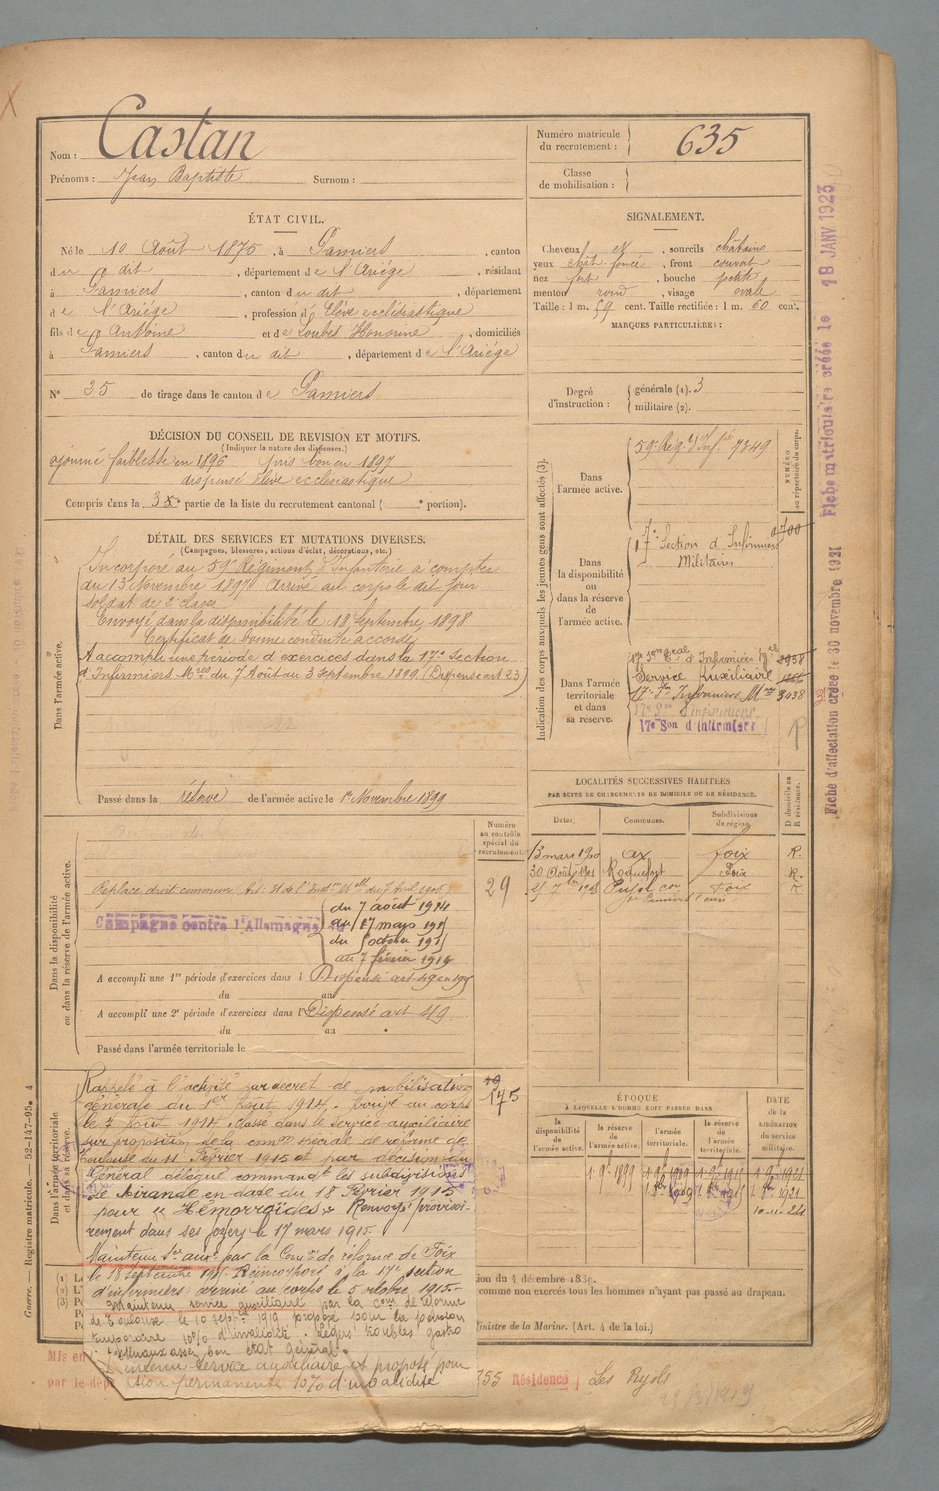 Nom : Castan
Prénoms : Jean Baptiste Surnom :
Numéro matricule du recrutement : 635
Classe de mobilisation :
ÉTAT CIVIL.
Né le 10 Août 1875, à Pamiers, canton
du dit, département de l'Ariége, résidant
à Pamiers, canton du dit, département
de l'Ariége, profession d'Elève ecclésiastique
fils de Antoine et de Loubes Honorine, domiciliés
à Pamiers, canton du dit, département de l'Ariége
N° 35 de tirage dans le canton de Pamiers
SIGNALEMENT.
Cheveux et, sourcils châtains
yeux chât. foncé, front couvert
nez fort, bouche petite
menton rond, visage ovale
Taille : 1 m. 59 cent. Taille rectifiée : 1 m. 60 cent.
MARQUES PARTICULIÈRES :
Degré d'instruction : générale (1). 3
militaire (2).
DÉCISION DU CONSEIL DE REVISION ET MOTIFS.
(Indiquer la nature des dispenses.)
ajourné faiblesse en 1896 pris bon en 1897
dispensé élève ecclésiastique
Compris dans la 3e partie de la liste du recrutement cantonal ( e portion).
DÉTAIL DES SERVICES ET MUTATIONS DIVERSES.
(Campagnes, blessures, actions d'éclat, décorations, etc.)
Dans l'armée active.
Incorporé au 59e Régiment d'Infanterie à compter
du 13 Novembre 1897. Arrivé au corps le dit jour
soldat de 2e classe
Envoyé dans la disponibilité le 18 Septembre 1898
Certificat de bonne conduite accordé
A accompli une période d'exercices dans la 17e Section
d'Infirmiers Mres du 7 Août au 3 Septembre 1899 (Dispensé art 23)
Passé dans la réserve de l'armée active le 1er Novembre 1899
Indication des corps auxquels les jeunes gens sont affectés (3).
NUMÉRO au répertoire du corps.
Dans l'armée active. 59e Régt d'Infie 7349
Dans la disponibilité ou dans la réserve de l'armée active.
17e Section d'Infirmiers
Militaires
Dans l'armée territoriale et dans sa réserve.
d'Infirmiers 2958
Service Auxiliaire
17e Son Infirmiers Mres 3438
17e Son d'infirmiers
17e Son d'infirmiers
LOCALITÉS SUCCESSIVES HABITÉES
PAR SUITE DE CHANGEMENTS DE DOMICILE OU DE RÉSIDENCE.
Dates. Communes. Subdivisions de région. D domicile ou R résidence.
13 mars 1900 Ax Foix R.
30 Août 1901 Roquefort Foix R.
Foix R
Dans la disponibilité ou dans la réserve de l'armée active.
Numéro au contrôle spécial du recrutement.
29
Replacé droit commun Art. 31 de l'Instr.
Campagne contre l'Allemagne
du 7 août 1914
au 17 mars 1915
du 5 octobre 1915
au 7 février 1919
A accompli une 1re période d'exercices dans l Dispensé
du au
A accompli une 2e période d'exercices dans l Dispensé art 49
du au
Passé dans l'armée territoriale le
Dans l'armée territoriale et dans sa réserve.
175
Rappelé à l'activité par décret de mobilisation
générale du 1er Août 1914. Arrivé au corps
le 7 Août 1914. Classé dans le service auxiliaire
sur proposition de la comon spéciale de réforme de
Toulouse du 11 Février 1915 et par décision du
Général délégué commandt les subdivisions
de Mirande en date du 18 Février 1915
pour "Hémorroïdes". Renvoyé provisoi-
rement dans ses foyers le 17 mars 1915.
Maintenu Sce auxre par la Comon de réforme de Foix
le 18 Septembre 1915. Réincorporé à la 17e section
d'infirmiers arrivé au corps le 5 octobre 1915.
Maintenu service auxiliaire par la Comon de réforme
de Toulouse le 10 sept. 1919 proposé pour la pension
temporaire 10% d'invalidité. Légers troubles gastro
assez bon état général.
Maintenu service auxiliaire et proposé pour
permanente 10% d'invalidité
ÉPOQUE
À LAQUELLE L'HOMME DOIT PASSER DANS
la disponibilité de l'armée active. la réserve de l'armée active. l'armée territoriale. la réserve de l'armée territoriale.
DATE de la LIBÉRATION du service militaire.
ion du 4 décembre 1889.
comme non exercés tous les hommes n'ayant pas passé au drapeau.
Ministre de la Marine. (Art. 4 de la loi.)
Mis en
par le dép
355 Résidence
Guerre. — Registre matricule. — 52-147-95. 4
Fiche d'affectation créée le 30 novembre 1921
Fiche matriculaire créée le 18 JANV 1923